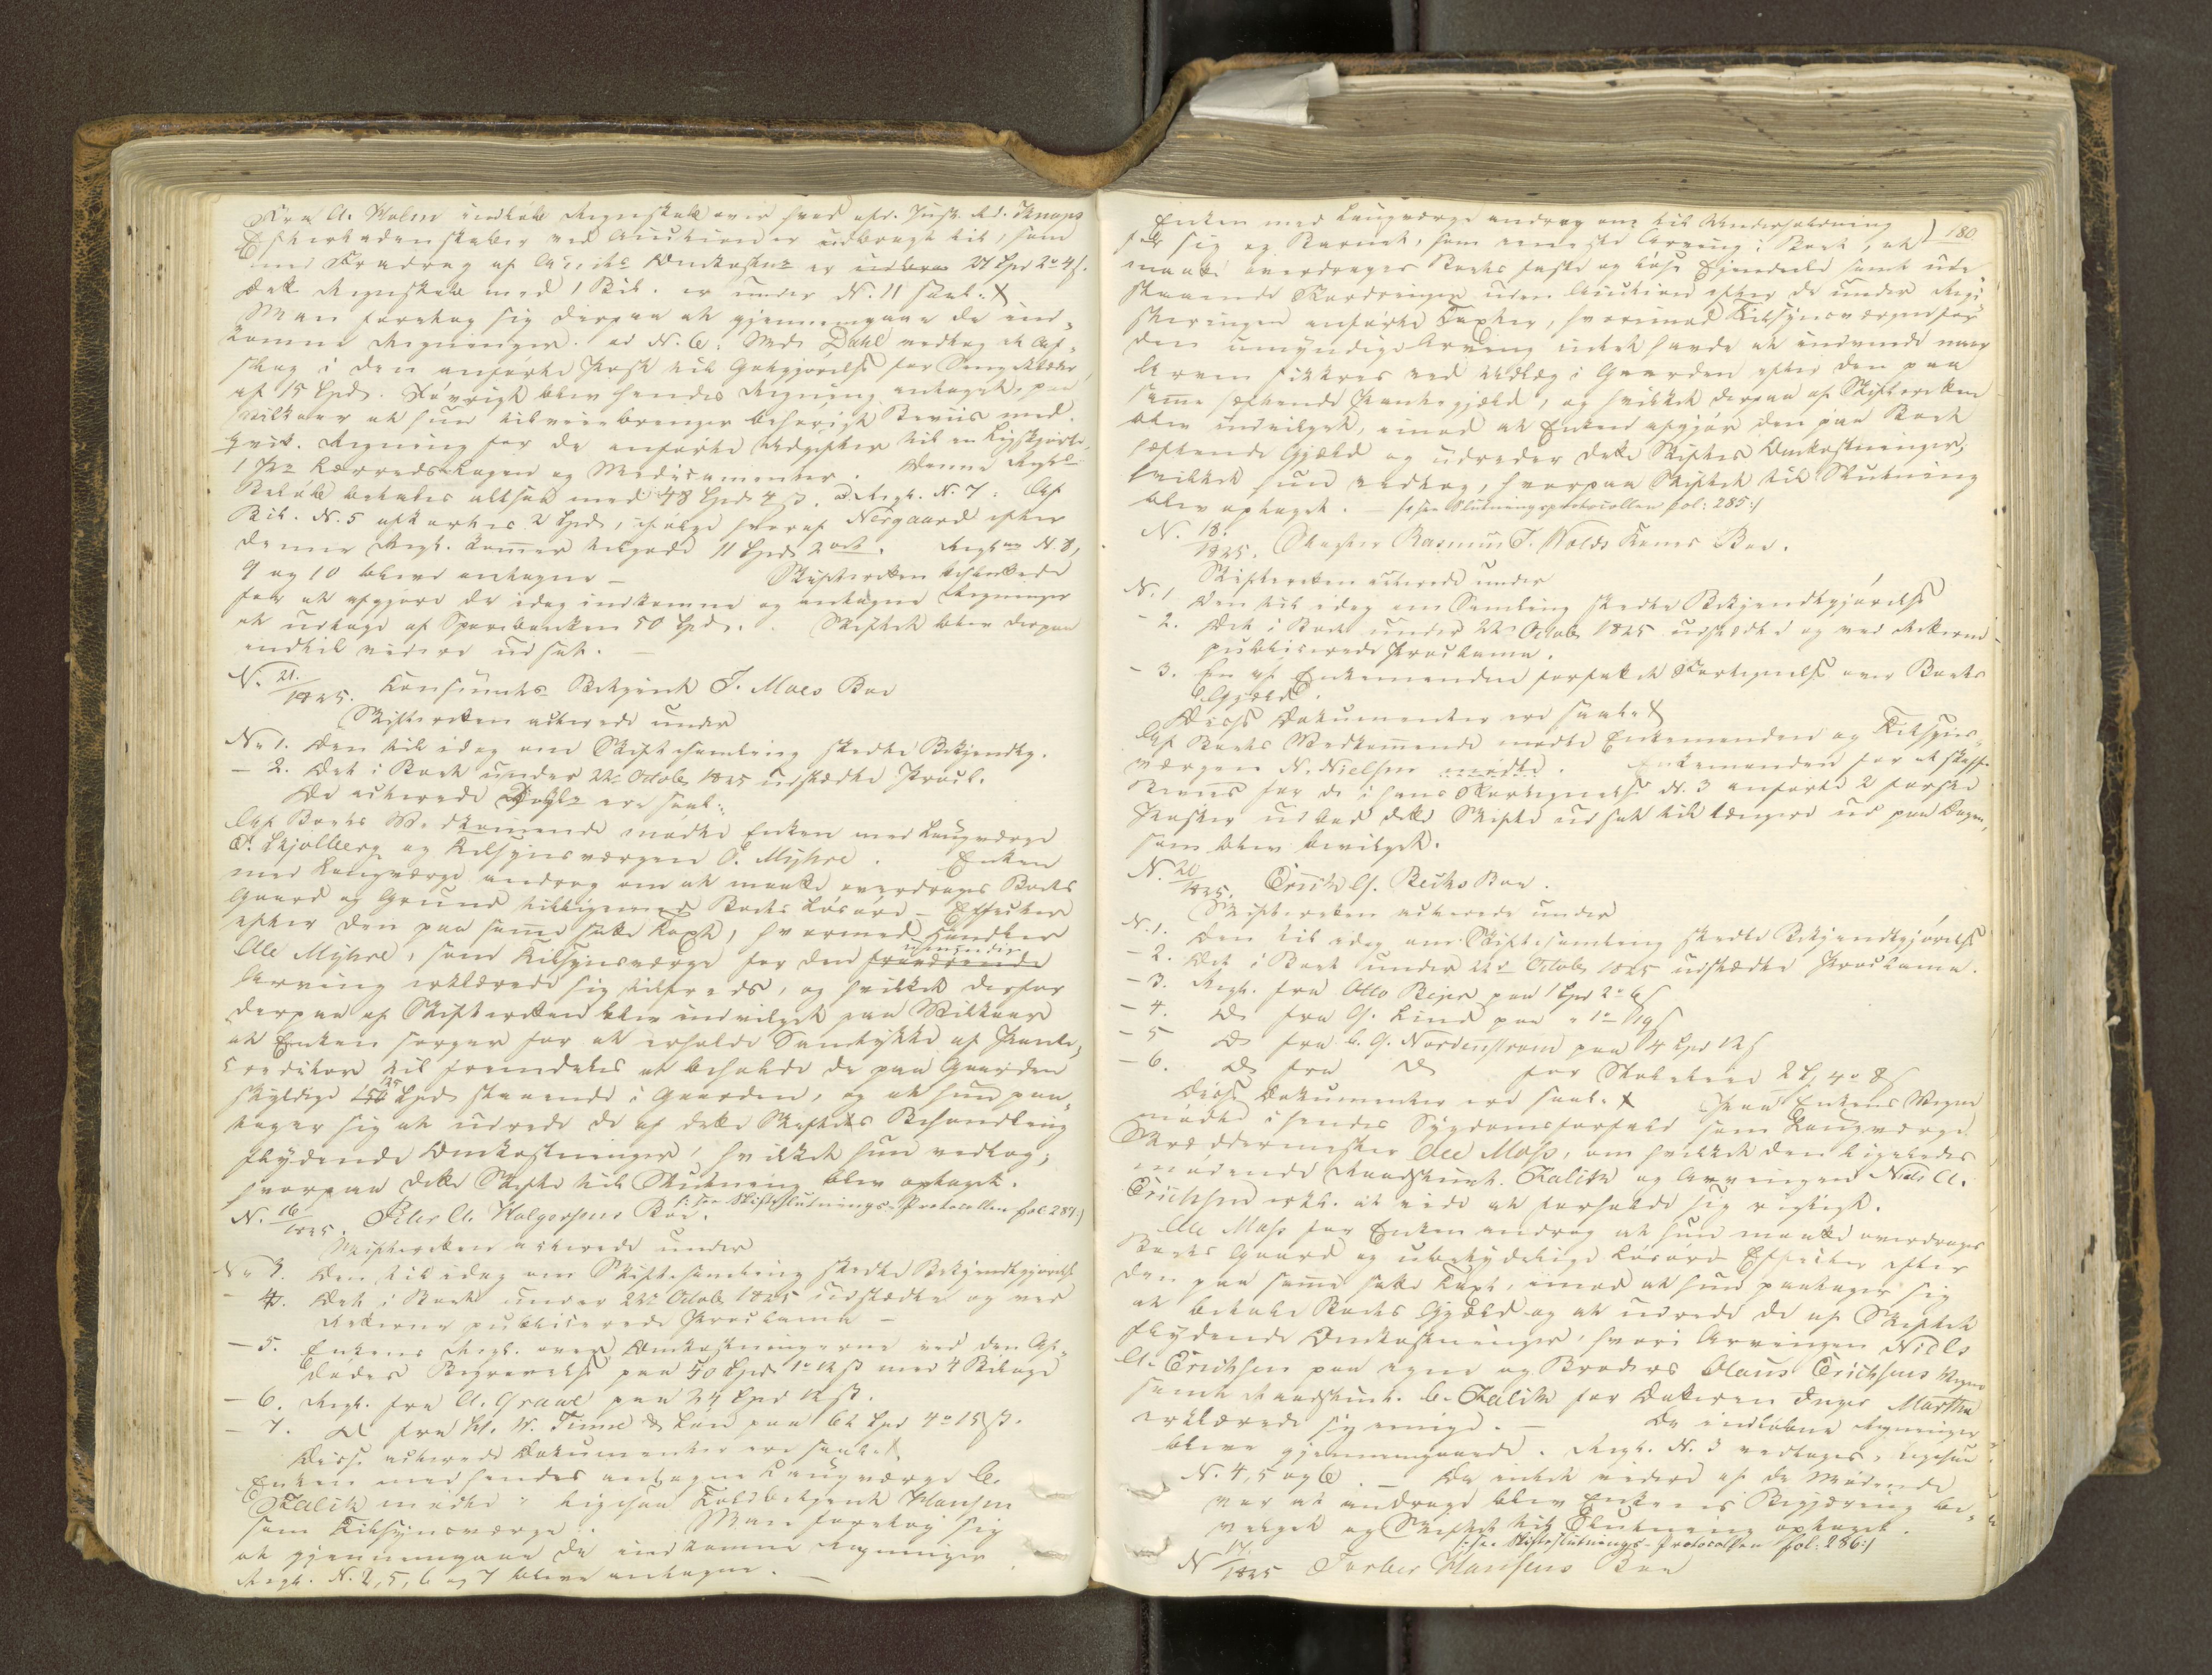 Fra A. Holm indkom Regnskab over hvad afd. Just. Rd. Knaps
Efterladenskaber ved Auction er udbragt til, som
med Fradrag af Omkostnr er 27 Spd 2 o 4 s.
Dette Regnskab med 1 Bil. er under N. 11 saal. X
Man foretog sig derpaa at gjennemgaae de ind-
komne Regninger. ad N. 6: Md. Dahl vedtog et Af-
slag i den anførte Post til Godtgjørelse for Sengeklæder
af 15 Spd. Iøvrigt blev hendes Regning antaget, paa
Vilkaar at hun tilveiebringer behørigt Beviis med
qvit. Regning for de anførte Udgifter til en Liigskjorte,
1 Par Lærreds Lagen og Medicamenter. Denne Regn.
Beløb betales altsaa med 48 Spd 4 ß. ad Regn. N. 7: Af
Bil. N. 5 afkortes 2 Spd, ifølge hvoraf Nergaard efter
denne Regn. kommer tilgode 11 Spd 2 ort. Regn N. 8,
9 og 10 bleve antagne – Skifteretten besluttede
for at afgjøre de idag indkomne og antagne Regninger
at udtage af Sparebanken 50 Spd. Skiftet blev derpaa
indtil videre udsat. –
N. 21/1825. Consumts Betjent J. Moes Boe
Skifteretten acterede under
N. 1. Den til idag om Skiftesamling skedte Bekjendtg.
– 2. Det i Boet under 22 Octob. 1825 udstædte Procl.
De acterede ere saal.
Af Boets Vedkommende mødte Enken med Laugværge
Skjølberg og Tilsynsværgen O. Myhre. Enken
med Laugværge androg om at maatte overdrages Boets
Gaard og Grund tilligemed Boets Løsøre-Effecter
efter den paa samme satte Taxt, hvormed
Ole Myhre, som Tilsynsværge for den fraværende umyndige
Arving erklærede sig tilfreds, og hvilket desfor
derpaa af Skifteretten blev indvilget paa Vilkaar
at Enken sørger for at erholde Samtykke af Pante-
creditor til fremdeles at beholde de paa Gaarden
skyldige 125 Spd. staaende i Gaarden, og at hun paa-
tager sig at udrede de af dette Skiftes Behandling
flydende Omkostninger, hvilket hun vedtog;
hvorpaa dette Skifte til Slutning blev optaget.
/: see Skifteslutnings-Protocollen fol. 284 :/
N. 16/1825. Peder A. Holgersens Boe.
Skifteretten acterede under
N. 3. Den til idag om Skiftesamling skedte Bekjendtgjørelse
– 4. Det i Boet under 22 Octob. 1825 udstædte og ved
Retterne publicerede Proclama –
– 5. Enkens Regn. over Omkostningerne ved den Af-
dødes Begravelse paa 50 Spd 1 o 12 ß med 4 Bilage
– 6. Regn. fra A. Graae paa 24 Spd 12 ß.
– 7. Do fra H. W. Finne & Søn paa 62 Spd 4 o 15 ß.
Disse acterede Documenter ere saal.
Enken med hendes antagne Laugværge C.
Falck mødte; ligesaa Toldbetjent Hansen
som Tilsynsværge. Man foretog sig
at gjennemgaae de indkomne Regninger
Regn. N. 2, 5, 6 og 7 bleve antagne. –
180
Enken med Laugværge androg om til Understøttelse
for sig og Barnet, som eneste Arving i Boet, at
maatte overdrages Boets faste og løse Eiendeele samt ude-
staaende Fordringer uden Auction efter de under Regi-
streringen anførte Taxter, hvorimod Tilsynsværgen for
den umyndige Arving intet havde at indvende naar
Arven sikkres ved Udlæg i Gaarden efter den paa
samme hæftende Pantegjæld, og hvilket derpaa af Skifteretten
blev indvilget, imod at Enken afgjør den paa Boet
hæftende Gjæld og udreder dette Skiftes Omkostninger,
hvilket hun vedtog, hvorpaa Skiftet til Slutning
blev optaget. – /: see Slutningsprotocollen fol: 285 :/
N. 18/1825. Rasmus J. Wolds Kones Boe.
Skifteretten acterede under
N. 1 Den til idag om Samling skedte Bekjendtgjørelse
– 2. Det i Boet under 22 Octob. 1825 udstædte og ved Retterne
publicerede Proclama.
– 3. En af Enkemanden forfattet Fortegnelse over Boets
Gjæld.
Disse Dokumenter ere saal. X
Af Boets Vedkommende mødte Enkemanden og Tilsyns-
værgen N. Nielsen mødte. Enkemanden for at skaffe
Beviis for de i hans Fortegnelse N. 3 anførte 2 første
Poster udbad dette Skifte udsat til længere ud paa Dagen,
som blev bevilget.
N. 20/1825. Erich A. Beichs Boe.
Skifteretten acterede under
N. 1. Den til idag om Skiftesamling skedte Bekjendtgjørelse
– 2. Det i Boet under 22 Octob 1825 udstædte Proclama.
– 3. Regn. fra Otto Beyer paa 1 Spd 2 o 6 s
– 4. Do fra G. Lind paa " 1 o 19 s
– 5 Do fra C. G. Nordenstrøm paa 4 Spd 12 s
– 6. Do fra Do for 2 Sp 4 o 8 s
Disse Dokumenter ere saal. X Paa Enkens Vegne
mødte i hendes Sygdomsforfald som Laugværge
Skræddermester Ole Moss, om hvilket den ligeledes
mødende Raadstuesk. Falck og Arvingen Niels A.
Erichsen erkl. at vide at forholde sig rigtigt.
Ole Moss for Enken androg at hun maatte overdrages
Boets Gaard og ubetydelige Løsøre Effecter efter
den paa samme satte Taxt, imod at hun paatager sig
at betale Boets Gjæld og at udrede de af Skiftet
flydende Omkostninger, hvori Arvingen Niels
A. Erichsen paa egne og Broders Olaus Erichsens Vegne
samt Raadstuesk. C. Falck for Datteren Inger Martha
erklærede sig enige. – De indkomne Regninger
bleve gjennemgaaede. Regn. N. 3 vedtoges, ligesaa
N. 4, 5 og 6. – Da intet videre af de Mødende
var at andrage blev Enkens Begjæring be-
vilget og Skiftet til Slutning optaget.
/: see Skifteslutnings-Protocollen fol: 286 :/
N 17/1825 Torber Hansens Boe